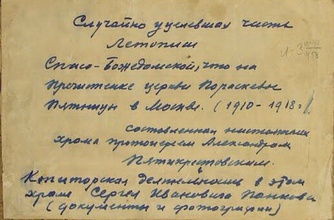 Случайно уцелевшая часть
Летописи
Спасо-Божедомской, что на
Пречистенке церкви Параскевы
Пятницы в Москве. (1910-1918 г.)
составленная настоятелем
храма протоиереем Александром
и
Конторская деятельность в этом
храме Сергея Ивановича
(документы и фотографии)